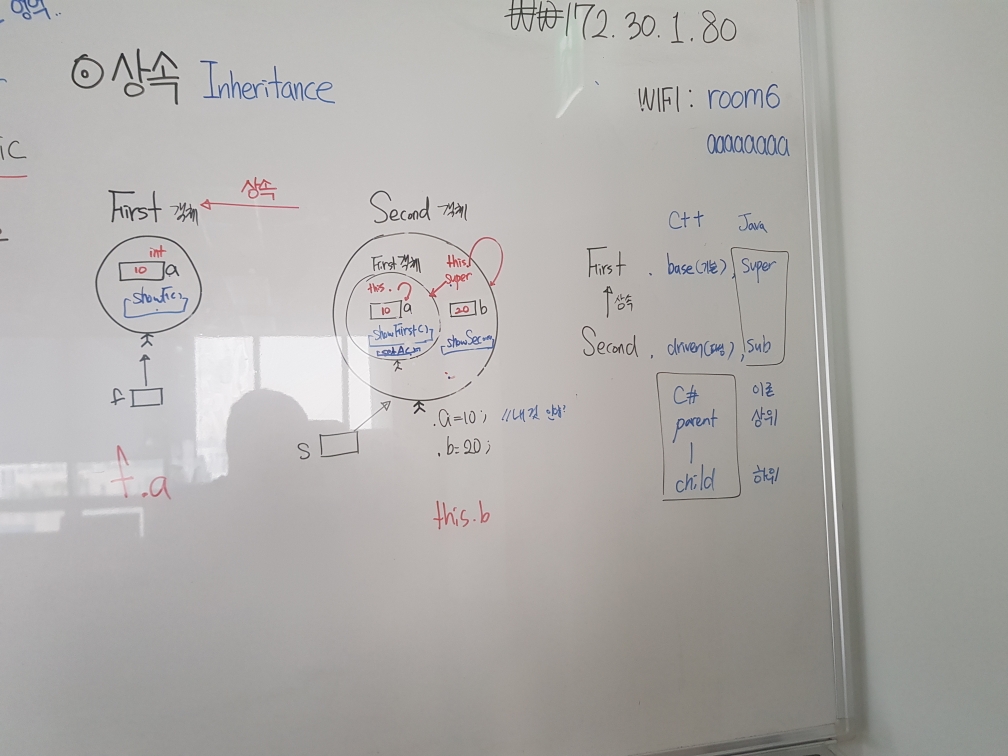 ₩₩172.30.1.80
⊙ 상속 Inheritance
WIFI: room6
aaaaaaaa
상속
First 객체
int
10 a
f
f.a
Second 객체
First 객체
this.
10 a
showFirst()
this.
super
20 b
S
.a=10; //내것 안에
.b=20;
this.b
C++ Java
First . base(기본), Super
상속
Second . driven(파생), Sub
C# 이론
parent 상위
child 하위